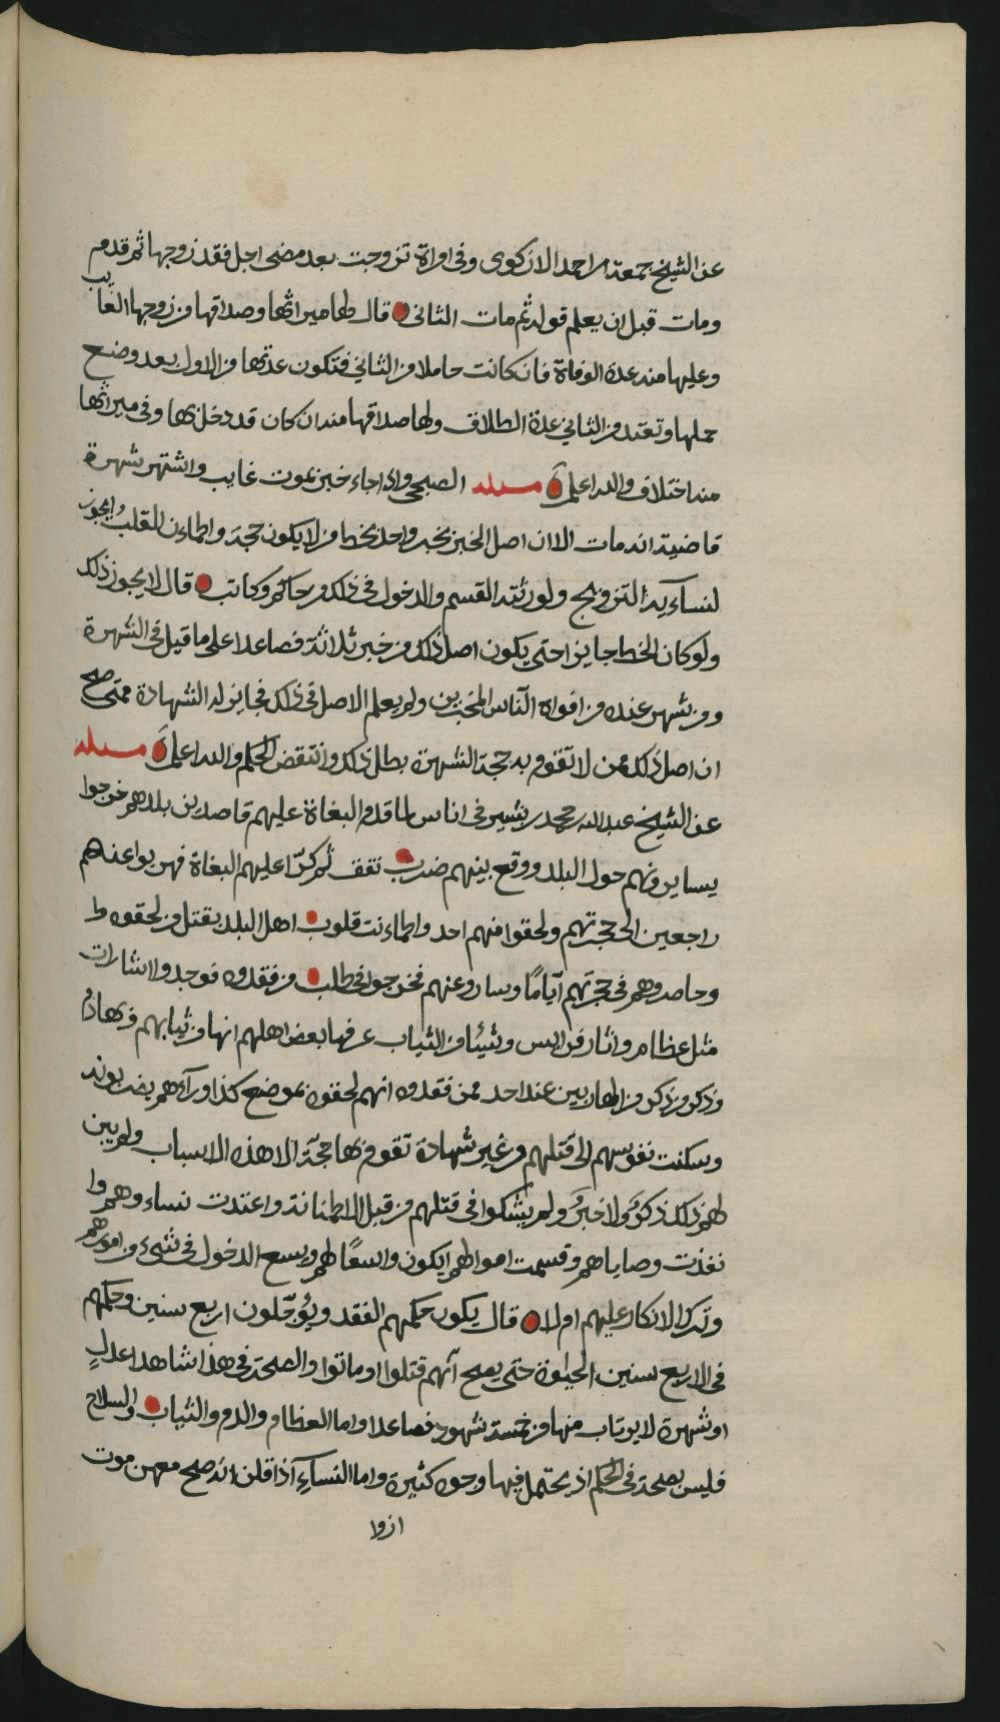 عن الشيخ جمعة بن احمد الازكوى وفى امراة تزوجت بعد مضى اجل فقد زوجها ثم قدم
ومات قبل ان يعلم قوله ثم مات الثانى قال لها ميراثها وصداقها من زوجها الغايب
وعليها منه عدة الوفاة فان كانت حاملا من الثاني فتكون عدتها من الاول بعد وضع
حملها وتعتد من الثاني عدة الطلاق ولها صداقها منه ان كان قد دخل بها وفى ميراثها
منه اختلاف والله اعلم مسئله الصبحي واذا جاء خبر بموت غايب واشتهر شهرة
قاضية انه مات الا ان اصل الخبر بخبر واحد بخط من لا يكون حجة واطماءن القلب ايجوز
لنسآءيه التزويج ولورثته القسم والدخول فى ذلك من حاكم وكاتب قال لا يجوز ذلك
ولو كان الخط جايزا حتى يكون اصل ذلك من خبر ثلاثة فصاعدا على ما قيل فى الشهرة
ومن شهر عنده من افواه الناس المخبرين ولم يعلم الاصل فى ذلك فجايز له الشهادة فمتى صح
ان اصل ذلك ممن لا تقوم به حجة الشهرة بطل ذلك وانتقض الحكم والله اعلم مسئله
عن الشيخ عبد الله بن محمد بن بشير فى اناس لما قدم البغاة عليهم قاصدين بلدهم خرجوا
يسايرونهم حول البلد ووقع بينهم ضرب تفق ثم كرّا عليهم البغاة فهربوا عنهم
راجعين الى حجرتهم ولحقوا منهم احد واطماءنت قلوب اهل البلد بقتل من لحقوه
وحاصروهم فى حجرتهم آيامًا وساروا عنهم فخرجوا فى طلب من فقدوه فوجدوا اشارات
مثل عظام واثار من الدس وشيئا من الثياب عرفها بعض اهلهم انها من ثيابهم وبها دم
وذكر من ذكر من الهاربين عند احد ممن فقدوه انهم لحقوه بموضع كذا ورآهم يضربونه
وسكنت نفوسهم الى قتلهم من غير شهادة تقوم بها حجة الا هذه الاسباب ولم يبن
لهم ذلك ذكر ولا خبر ولم يشكوا فى قتلهم من قبل الاطمنانة واعتدت نساءوهم وا
نفذت وصاياهم وقسمت اموالهم ايكون واسعًا لهم ويسع الدخول فى شىء من امورهم
وترك الانكار عليهم ام لا قال يكون حكمهم الفقد ويؤجّلون اربع سنين وحكمهم
فى الاربع سنين الحيٰوة حتى يصح آنهم قتلوا او ماتوا والصحة فى هذا شاهدا عدلٍ
او شهرة لا يرتاب منها من خمسة شهور فصاعدا واما العظام والدم والثياب والسلاح
فليس بصحة فى الحكم اذ يحتمل فيها وجوه كثيرة واما النسآء آذا قلن انه صح معهن موت
ازوا